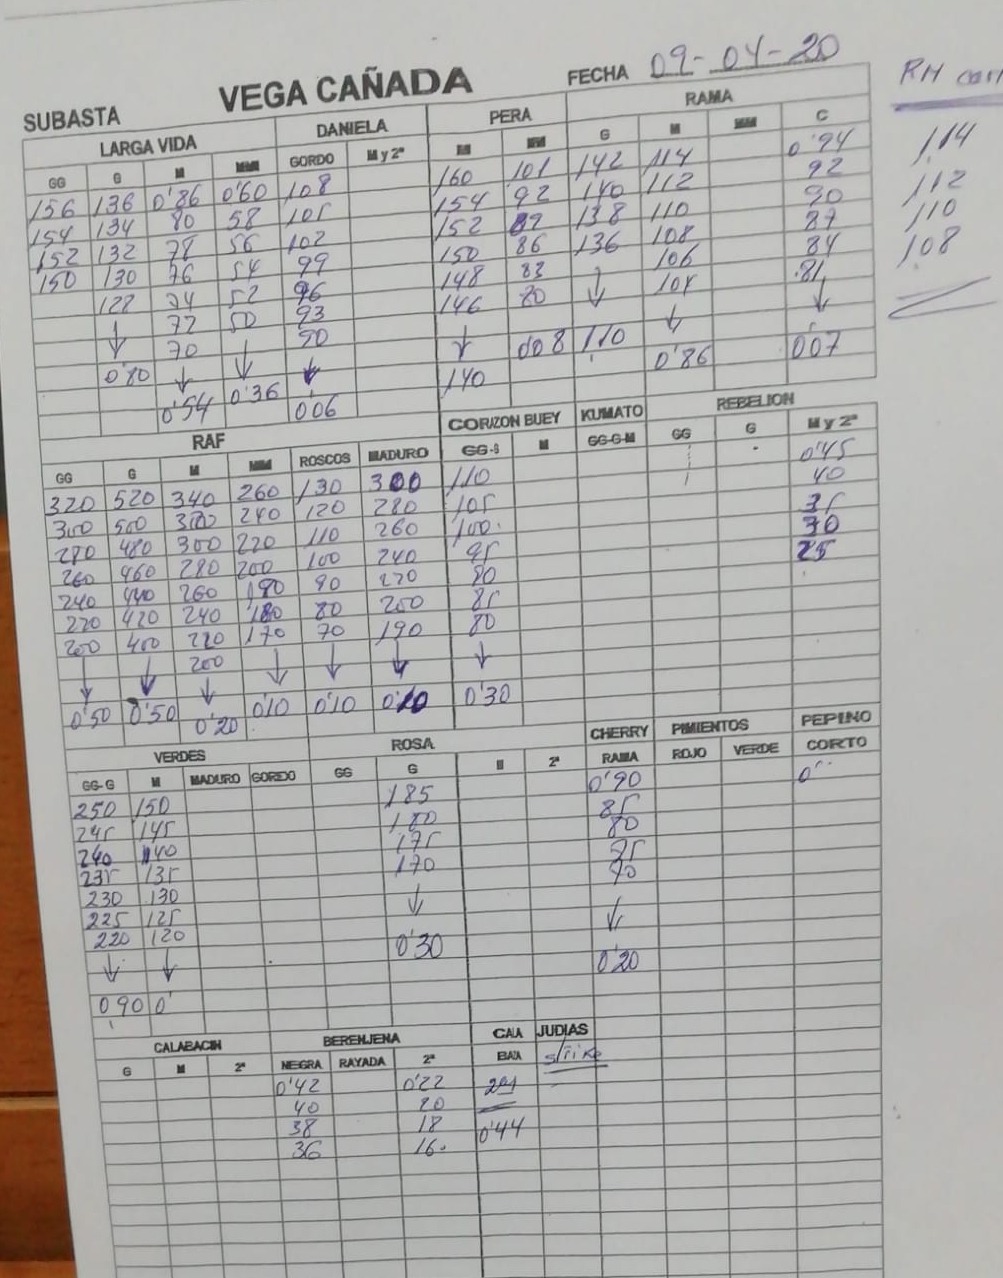 SUBASTA VEGA CAÑADA FECHA 09-04-20
RH
LARGA VIDA DANIELA PERA RAMA
GG G M MM GORDO M y 2ª M MM G M MM C
156 136 0'86 0'60 108 160 101 142 114 0'94
154 134 80 58 105 154 92 140 112 92
152 132 78 56 102 152 89 138 110 90
150 130 76 54 99 150 86 136 108 87
128 74 52 96 148 83 ↓ 106 84
↓ 72 50 93 146 80 104 81
70 ↓ 90 ↓ ↓ ↓
0'80 ↓ 0'36 ↓ 140 008 110 0'86 007
0'54 006
114
112
110
108
RAF CORIZON BUEY KUMATO REBELION
GG G M MM ROSCOS MADURO GG-S M GG-G-M GG G M y 2ª
320 520 340 260 130 300 110 0'45
300 500 320 240 120 280 105 40
280 480 300 220 110 260 100 35
260 460 280 200 100 240 95 30
240 440 260 190 90 220 90 25
220 420 240 180 80 200 85
200 400 220 170 70 190 80
200
↓ ↓ ↓ ↓ ↓ ↓ ↓
0'50 0'50 0'20 010 0'10 0'10 0'30
VERDES ROSA CHERRY PIMIENTOS PEPINO
GG-G M MADURO GORDO GG G M 2ª RAMA ROJO VERDE CORTO
250 150 185 0'90
245 145 180 85
240 140 175 80
235 135 170 75
230 130 70
225 125 ↓ ↓
220 120 0'30 0'20
↓ ↓
0 90 0'
CALABACIN BERENJENA CAIA JUDIAS
G M 2ª NEGRA RAYADA 2ª BAJA strike
0'42 0'22
40 20
38 18 0'44
36 16